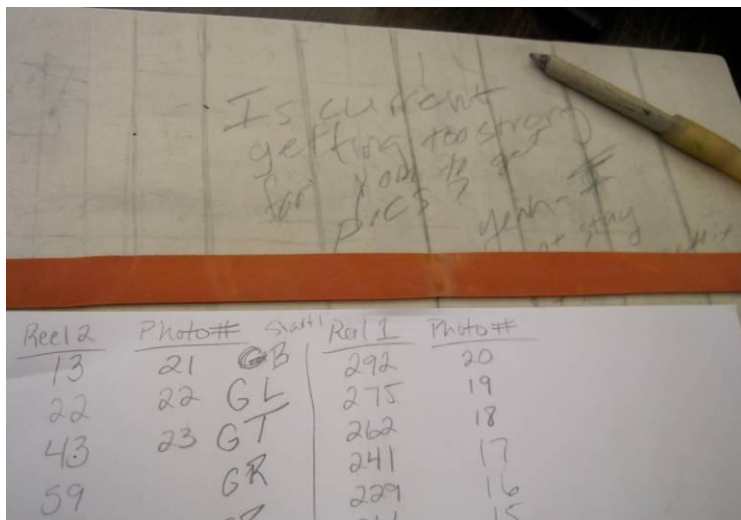 Is current
getting too strong
for you to get
pics?
yeah - I
stay
Reel 2 Photo # Start 1 Reel 1 Photo #
13 21 GB 292 20
22 22 GL 275 19
43 23 GT 262 18
GR 241 17
59 229 16
15